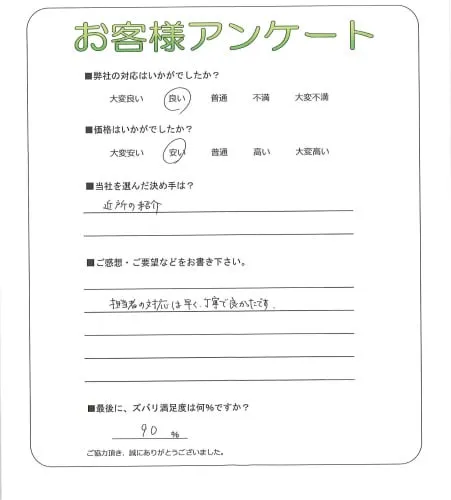 お客様アンケート
■弊社の対応はいかがでしたか?
大変良い 良い 普通 不満 大変不満
■価格はいかがでしたか?
大変安い 安い 普通 高い 大変高い
■当社を選んだ決め手は?
近所の紹介
■ご感想・ご要望などをお書き下さい。
担当者の対応は早く、丁寧で良かったです。
■最後に、ズバリ満足度は何%ですか?
90 %
ご協力頂き、誠にありがとうございました。